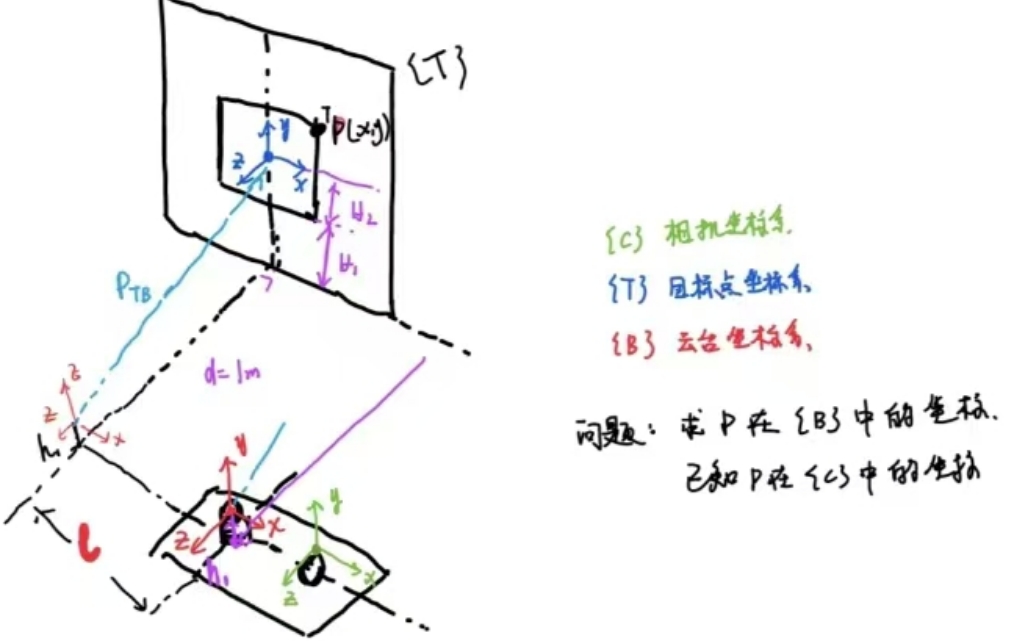 {T}
ᵀP(x,y)
y
z
x
H₂
H₁
P_TB
d=1m
z
z
x
h₁
l
y
x
z
h₁
y
x
z
{C} 相机坐标系.
{T} 目标点坐标系
{B} 云台坐标系.
问题: 求P在{B}中的坐标.
已知P在{C}中的坐标